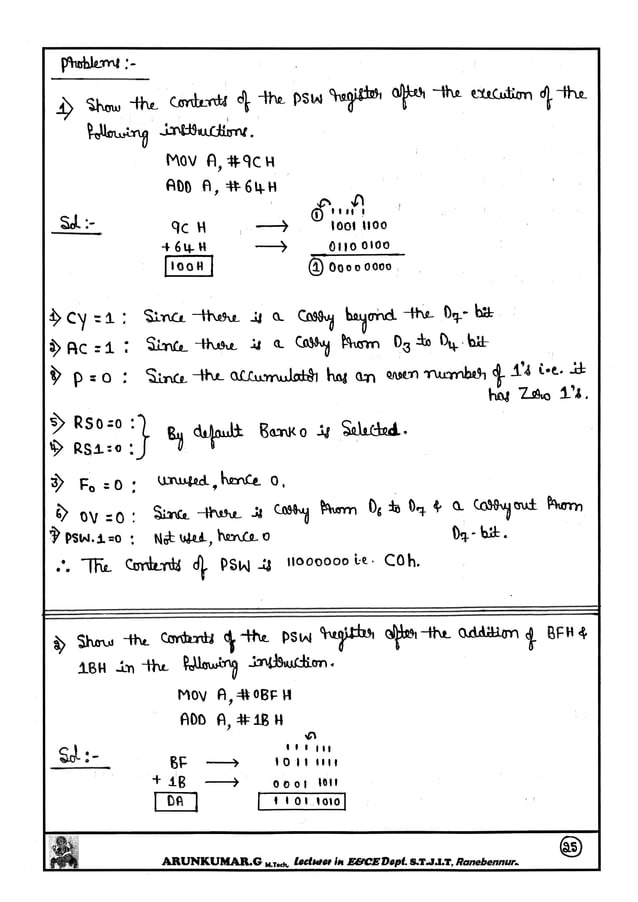 Problems :-
1) Show the contents of the PSW register after the execution of the
following instructions.
MOV A, #9C H
ADD A, #64H
Sol :-
① 1 1 1 1 1
9C H → 1001 1100
+ 64 H → 0110 0100
100H ① 0000 0000
1) CY = 1 : Since there is a carry beyond the D7 - bit
2) AC = 1 : Since there is a carry from D3 to D4 bit
8) P = 0 : Since the accumulator has an even number of 1's i.e. it
has Zero 1's.
5) RS0 = 0 :
4) RS1 = 0 :
} By default Bank 0 is Selected.
3) F0 = 0 : unused, hence 0.
6) OV = 0 : Since there is carry from D6 to D7 & a carry out from
D7 - bit.
7) PSW.1 = 0 : Not used, hence 0
∴ The contents of PSW is 11000000 i.e. C0h.
2) Show the contents of the PSW register after the addition of BFH &
1BH in the following instruction.
MOV A, #0BF H
ADD A, #1B H
Sol :-
1 1 1 1 1 1
BF → 1011 1111
+ 1B → 0001 1011
DA 1101 1010
25
ARUNKUMAR.G M.Tech, Lecturer in E&CE Dept. S.T.J.I.T, Ranebennur.